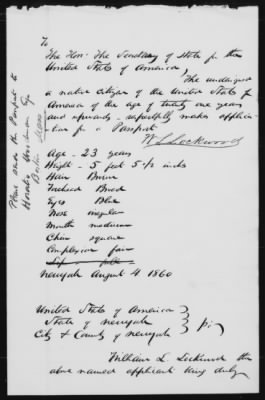 To
The Hon. The Secretary of State for the
United States of America,
The undersigned
a native citizen of the United States of
America of the age of twenty one years
and upwards respectfully makes applica-
tion for a Passport
W L Lockwood
Age - 23 years
Height - 5 feet 5 1/2 inches
Hair Brown
Forehead Broad
Eyes Blue
Nose regular
Mouth medium
Chin square
Complexion fair
New York August 4 1860
United States of America
State of New York
City & County of New York
William L. Lockwood the
above named applicant being duly
Please send the Passport to
Horatio Esq
Boston Mass